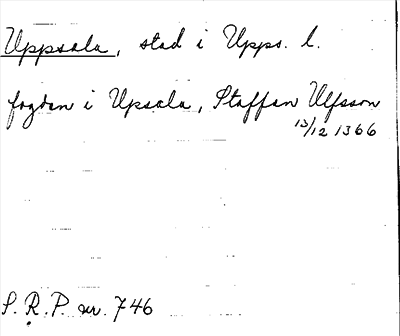 Uppsala, stad i Upps. l.
fogden i Upsala, Staffan Ulfsson
13/12 1366
S. R. P. nr. 746